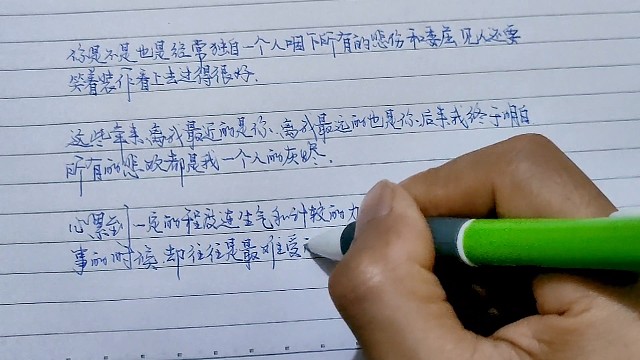 你是不是也是经常独自一个人咽下所有的悲伤和委屈 见人还要
笑着装作看上去过得很好.
这些年来,离我最近的是你.离我最远的也是你.后来我终于明白
所有的悲欢都是我一个人的灰烬.
心累到一定的程度连生气和计较的力
事的时候 却往往是最难受